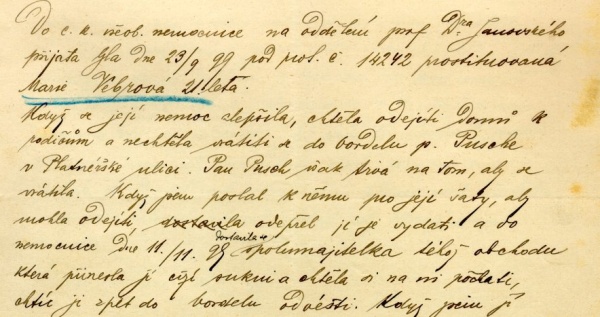 Do c. k. všeob. nemocnice na oddělení prof. Dra Janovského
přijata byla dne 23/9 99 pod prot. č. 14242 prostituovaná
Marie Vébrová 21 letá.
Když se její nemoc zlepšila, chtěla odejíti domů k
rodičům a nechtěla vrátiti se do bordelu p. Pusche
v Platnéřské ulici. Pan Pusch však trvá na tom, aby se
vrátila. Když jsem poslal k němu pro její šaty, aby
mohla odejíti, dostavila odepřel jí je vydati a do
nemocnice dne 11./11. 99 dostavila se spolumajitelka téhož obchodu
která přinesla jí cizí sukni a chtěla si na ni počkati,
chtíc ji zpět do bordelu odvésti. Když jsem jí